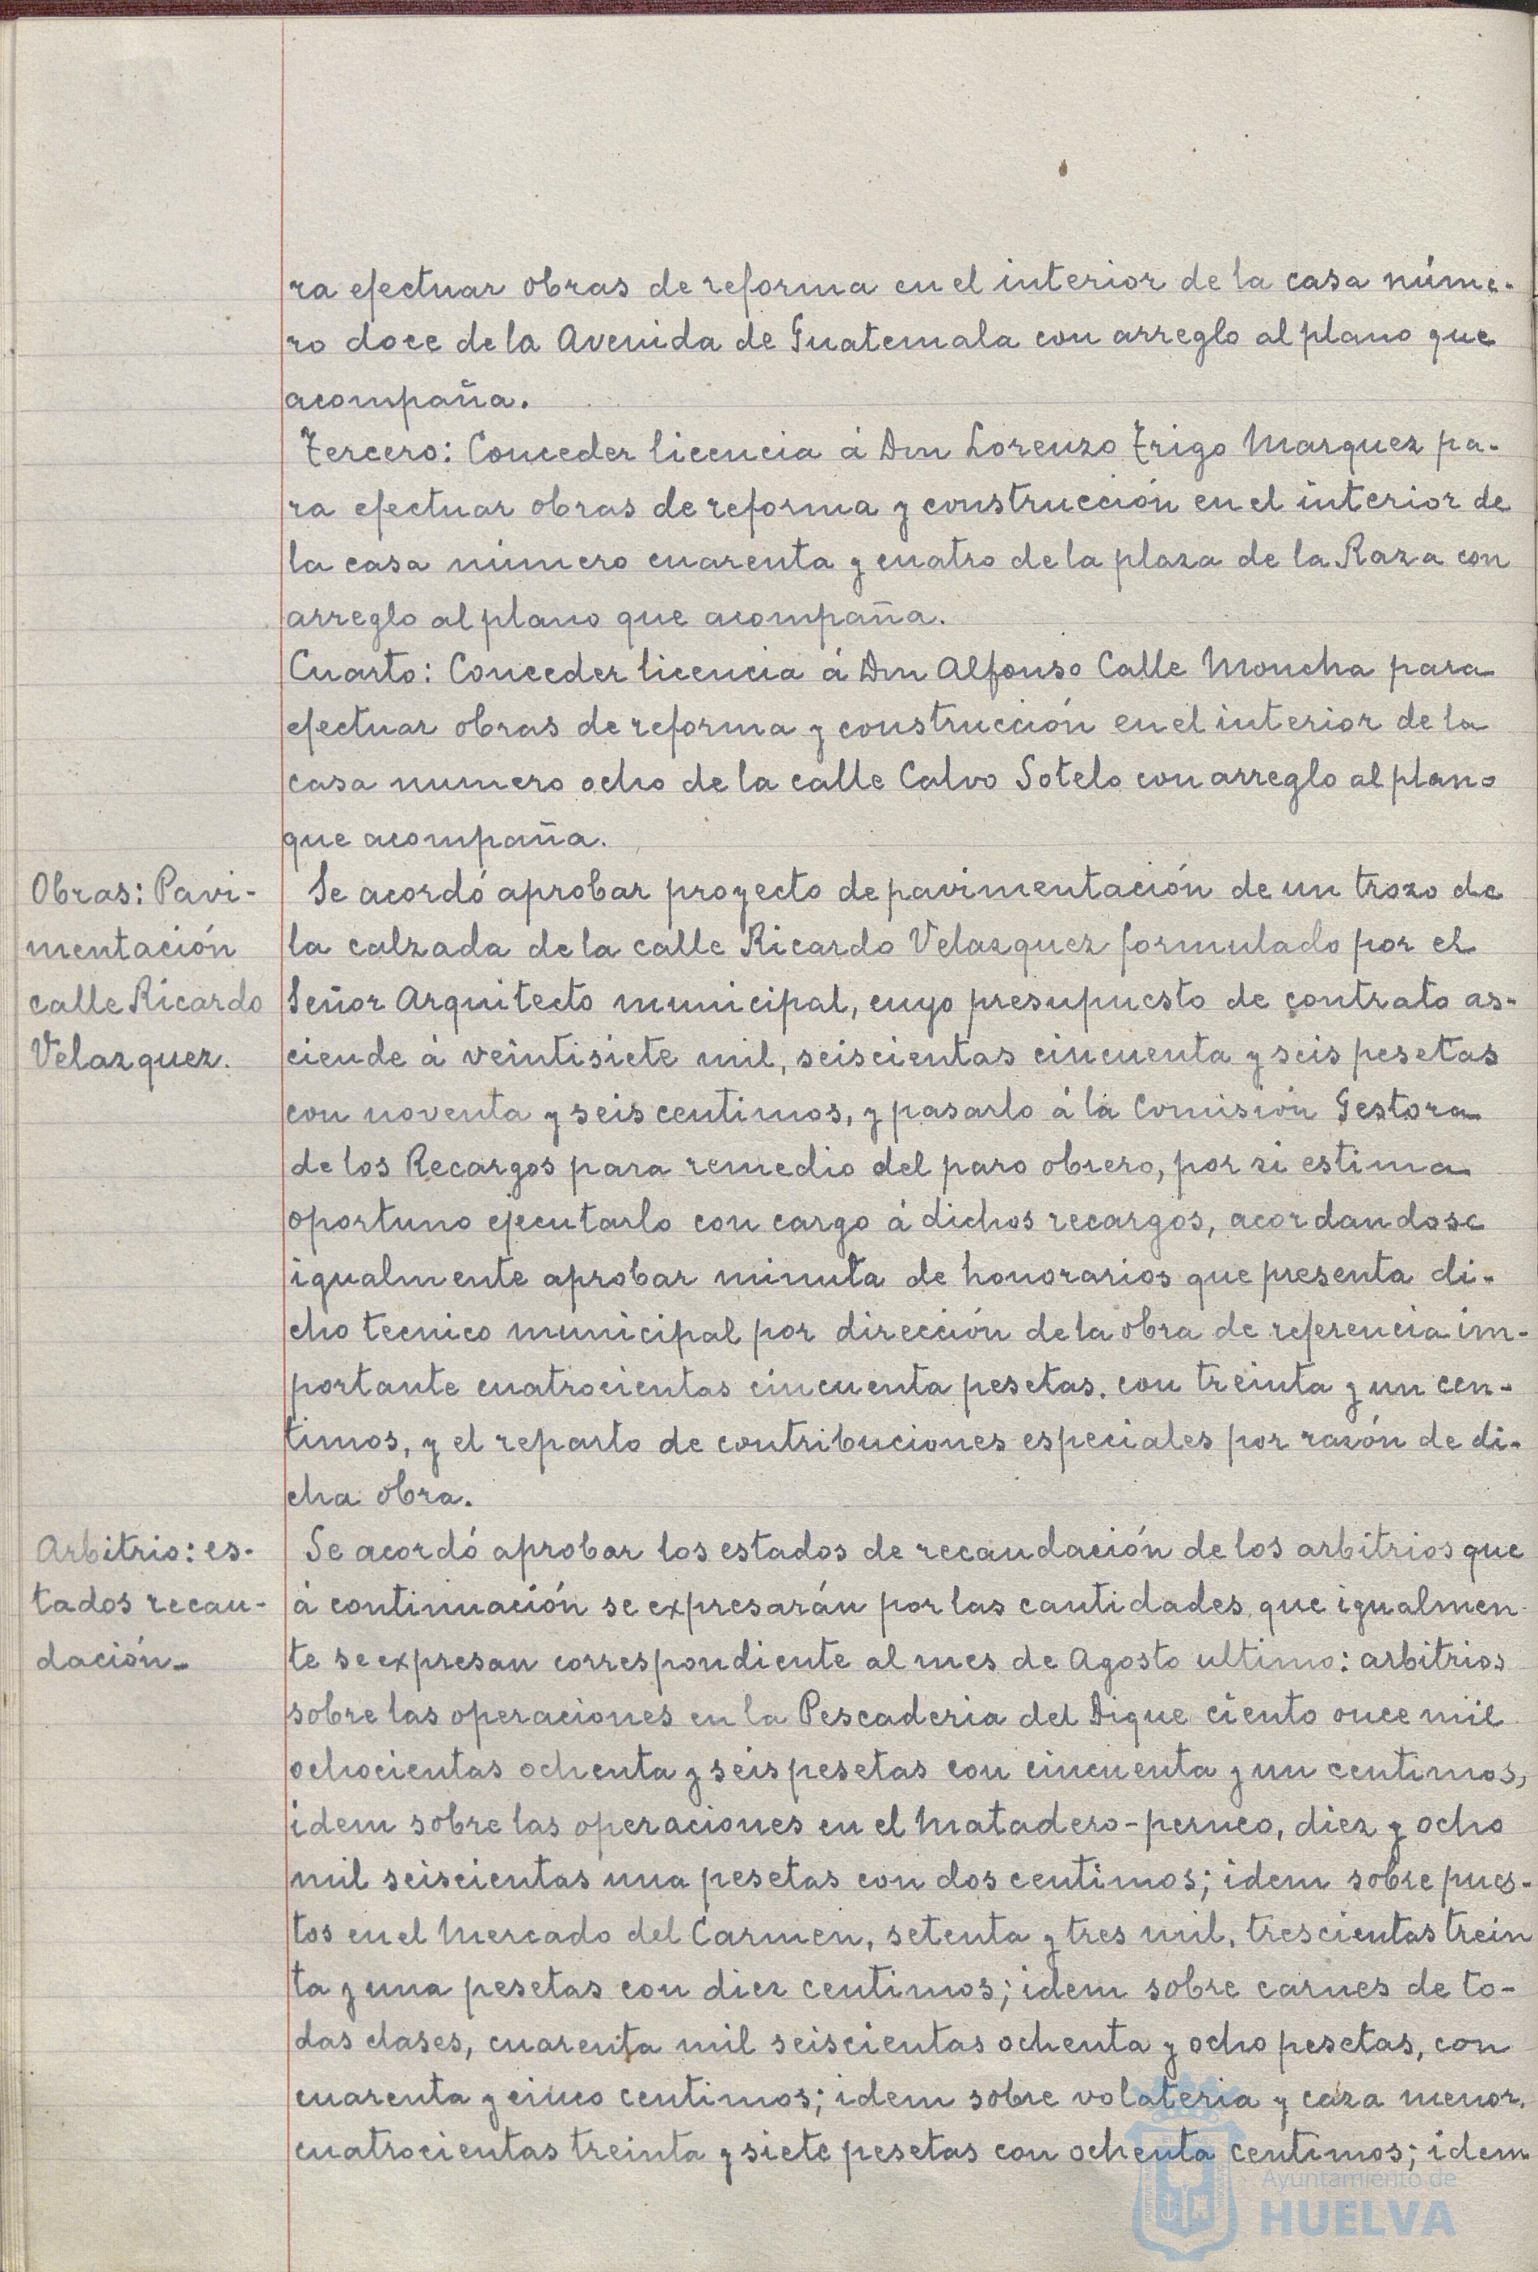 ra efectuar obras de reforma en el interior de la casa núme-
ro doce de la Avenida de Guatemala con arreglo al plano que
acompaña.
Tercero: Conceder licencia á Don Lorenzo Trigo Marquez pa-
ra efectuar obras de reforma y construcción en el interior de
la casa número cuarenta y cuatro de la plaza de la Raza con
arreglo al plano que acompaña.
Cuarto: Conceder licencia á Don Alfonso Calle Moncha para
efectuar obras de reforma y construcción en el interior de la
casa numero ocho de la calle Calvo Sotelo con arreglo al plano
que acompaña.
Obras: Pavi-
mentación
calle Ricardo
Velazquez.
Se acordó aprobar proyecto de pavimentación de un trozo de
la calzada de la calle Ricardo Velazquez formulado por el
Señor Arquitecto municipal, cuyo presupuesto de contrato as-
ciende á veintisiete mil, seiscientas cincuenta y seis pesetas
con noventa y seis centimos, y pasarlo á la Comisión Gestora
de los Recargos para remedio del paro obrero, por si estima
oportuno ejecutarlo con cargo á dichos recargos, acordandose
igualmente aprobar minuta de honorarios que presenta di-
cho tecnico municipal por dirección de la obra de referencia im-
portante cuatrocientas cincuenta pesetas. con treinta y un cen-
timos, y el reparto de contribuciones especiales por razón de di-
cha obra.
Arbitrio: es-
tados recau-
dación.
Se acordó aprobar los estados de recaudación de los arbitrios que
á continuación se expresarán por las cantidades que igualmen-
te se expresan correspondiente al mes de Agosto ultimo: arbitrios
sobre las operaciones en la Pescaderia del Dique ciento once mil
ochocientas ochenta y seis pesetas con cincuenta y un centimos,
idem sobre las operaciones en el Matadero-perneo, diez y ocho
mil seiscientas una pesetas con dos centimos; idem sobre pues-
tos en el Mercado del Carmen, setenta y tres mil, trescientas trein
ta y una pesetas con diez centimos; idem sobre carnes de to-
das clases, cuarenta mil seiscientas ochenta y ocho pesetas, con
cuarenta y cinco centimos; idem sobre volateria y caza menor,
cuatrocientas treinta y siete pesetas con ochenta centimos; idem
Ayuntamiento de
HUELVA